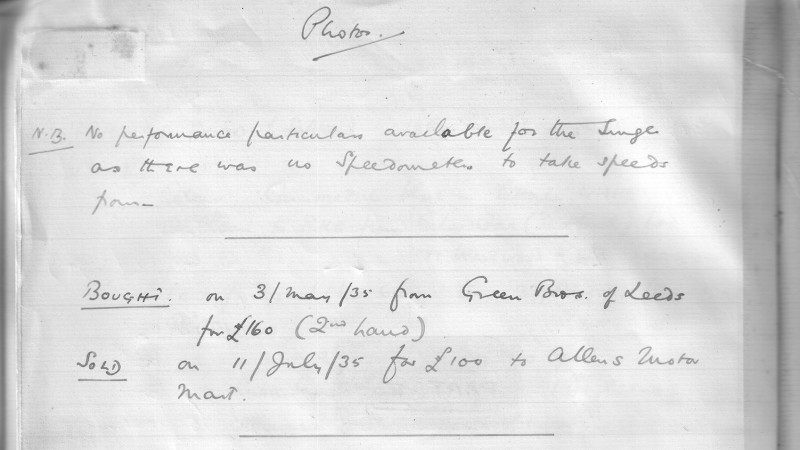 Photos.
N.B. No performance particulars available for the Singer
as there was no Speedometer to take speeds
from—
BOUGHT. on 3/May/35 from Green Bros. of Leeds
for £160 (2nd hand)
SOLD on 11/July/35 for £100 to Allens Motor
Mart.